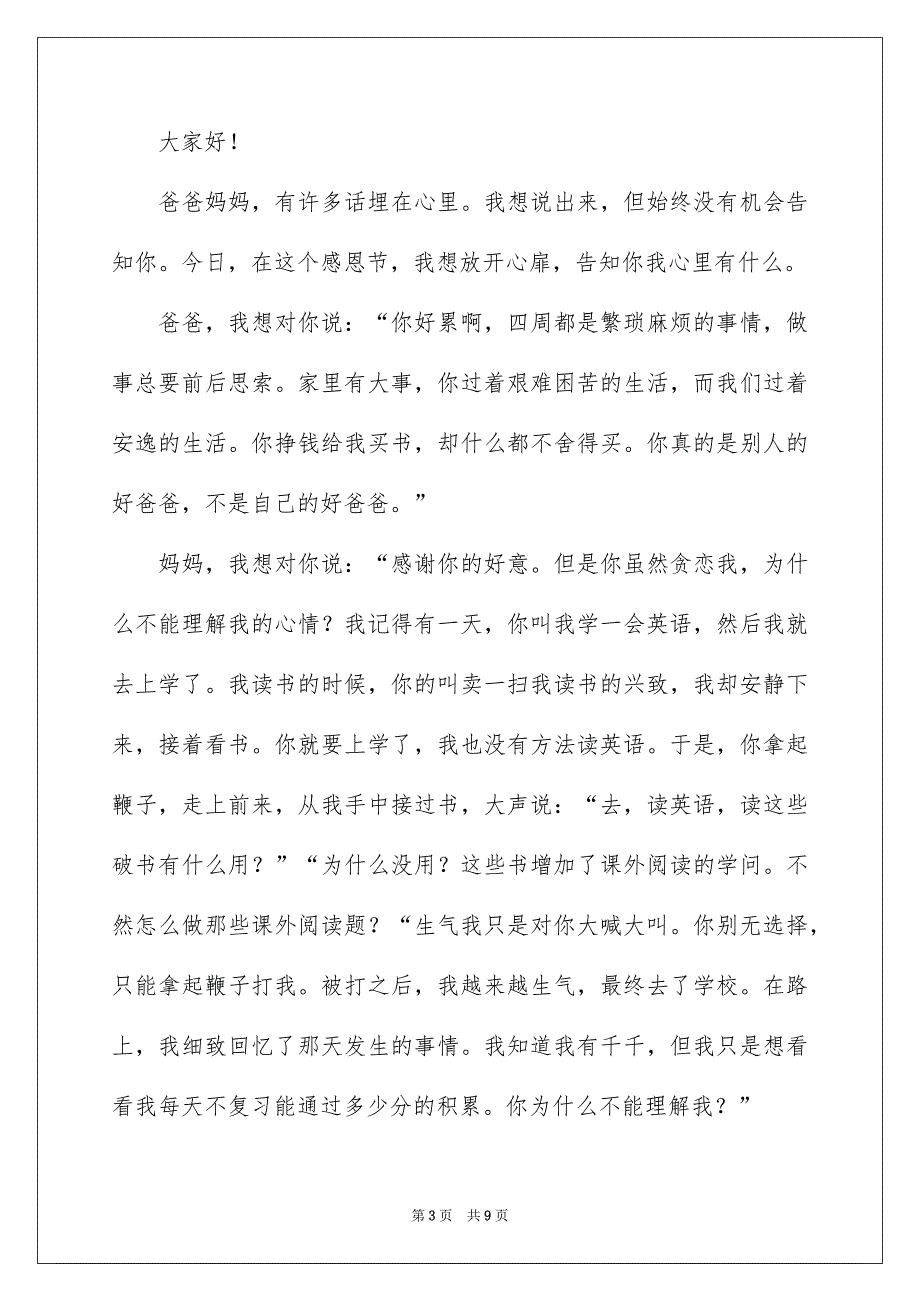 大家好！
爸爸妈妈，有许多话埋在心里。我想说出来，但始终没有机会告
知你。今日，在这个感恩节，我想放开心扉，告知你我心里有什么。
爸爸，我想对你说：“你好累啊，四周都是繁琐麻烦的事情，做
事总要前后思索。家里有大事，你过着艰难困苦的生活，而我们过着
安逸的生活。你挣钱给我买书，却什么都不舍得买。你真的是别人的
好爸爸，不是自己的好爸爸。”
妈妈，我想对你说：“感谢你的好意。但是你虽然贪恋我，为什
么不能理解我的心情？我记得有一天，你叫我学一会英语，然后我就
去上学了。我读书的时候，你的叫卖一扫我读书的兴致，我却安静下
来，接着看书。你就要上学了，我也没有方法读英语。于是，你拿起
鞭子，走上前来，从我手中接过书，大声说：“去，读英语，读这些
破书有什么用？”“为什么没用？这些书增加了课外阅读的学问。不
然怎么做那些课外阅读题？“生气我只是对你大喊大叫。你别无选择，
只能拿起鞭子打我。被打之后，我越来越生气，最终去了学校。在路
上，我细致回忆了那天发生的事情。我知道我有千千，但我只是想看
看我每天不复习能通过多少分的积累。你为什么不能理解我？”
第 3 页 共 9 页